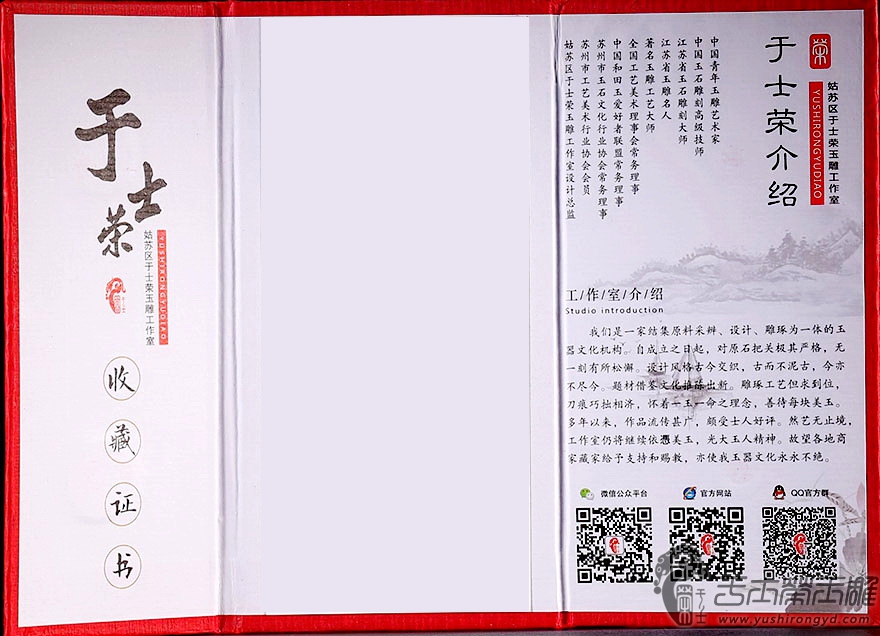 于士荣
姑苏区于士荣玉雕工作室
YUSHIRONGYUDIAO
收藏证书
荣
姑苏区于士荣玉雕工作室
YUSHIRONGYUDIAO
于士荣介绍
中国青年玉雕艺术家
中国玉石雕刻高级技师
江苏省玉石雕刻大师
江苏省玉雕名人
著名玉雕工艺大师
全国工艺美术理事会常务理事
中国和田玉爱好者联盟常务理事
苏州市玉石文化行业协会常务理事
苏州市工艺美术行业协会会员
姑苏区于士荣玉雕工作室设计总监
工/作/室/介/绍
Studio introduction
我们是一家结集原料采辩、设计、雕琢为一体的玉
器文化机构。自成立之日起，对原石把关极其严格，无
一刻有所松懈。设计风格古今交织，古而不泥古，今亦
不尽今。题材借鉴文化推陈出新。雕琢工艺但求到位，
刀痕巧拙相济，怀着一玉一命之理念，善待每块美玉。
多年以来，作品流传甚广，颇受士人好评。然艺无止境，
工作室仍将继续依憑美玉，光大玉人精神。故望各地商
家藏家给予支持和赐教，亦使我玉器文化永永不绝。
微信公众平台
官方网站
QQ官方群
于士荣玉雕
www.yushirongyd.com